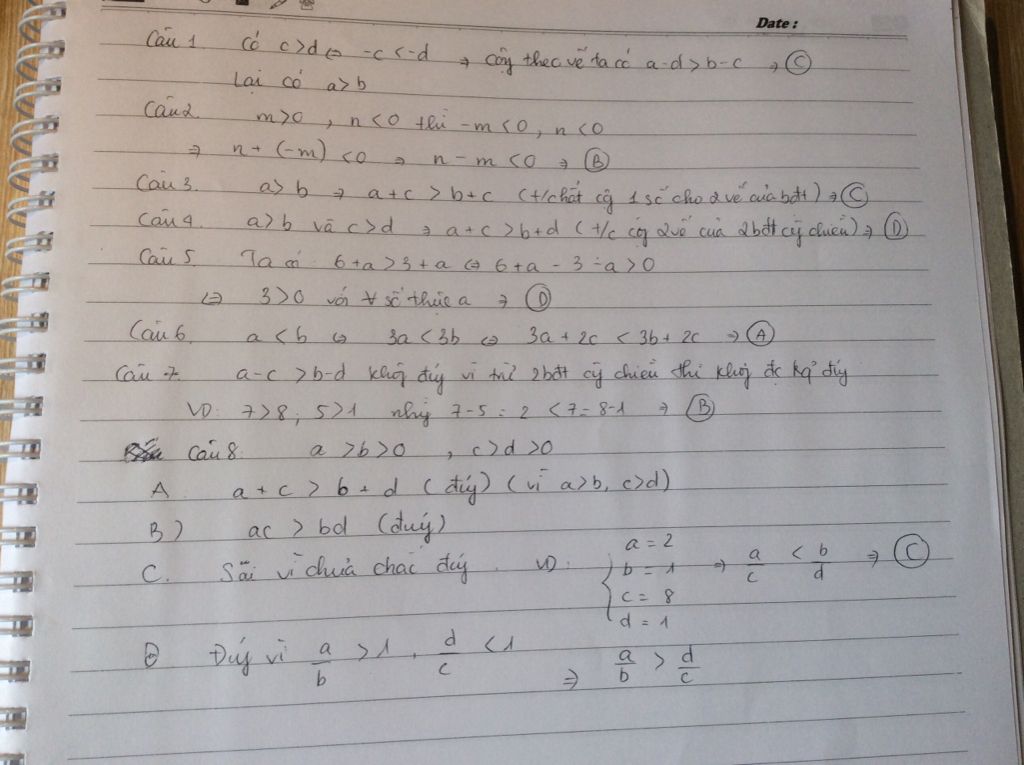 Date:
Câu 1. Có c>d ⇔ -c<-d ⇒ cộng theo vế ta có a-d>b-c ⇒ Ⓒ
Lại có a>b
Câu 2. m>0, n<0 thì -m<0, n<0
⇒ n+(-m)<0 ⇒ n-m<0 ⇒ Ⓑ
Câu 3. a>b ⇒ a+c>b+c (t/chất cộng 1 số cho 2 vế của bđt) ⇒ Ⓒ
Câu 4. a>b và c>d ⇒ a+c>b+d (t/c cộng 2 vế của 2bđt cg chiều) ⇒ Ⓓ
Câu 5. Ta có: 6+a>3+a ⇔ 6+a-3-a>0
⇔ 3>0 với ∀ số thực a ⇒ Ⓓ
Câu 6. a<b ⇔ 3a<3b ⇔ 3a+2c<3b+2c ⇒ Ⓐ
Câu 7. a-c>b-d không đúng vì trừ 2bđt cg chiều thì không đc kq đúng
VD: 7>8; 5>1 nhưng 7-5=2<7=8-1 ⇒ Ⓑ
Câu 8. a>b>0, c>d>0
A. a+c>b+d (đúng) (vì a>b, c>d)
B) ac>bd (đúng)
C. Sai vì chưa chắc đúng. VD: { a=2 b=1 c=8 d=1 ⇒ a/c < b/d ⇒ Ⓒ
D Đúng vì a/b >1, d/c <1 ⇒ a/b > d/c